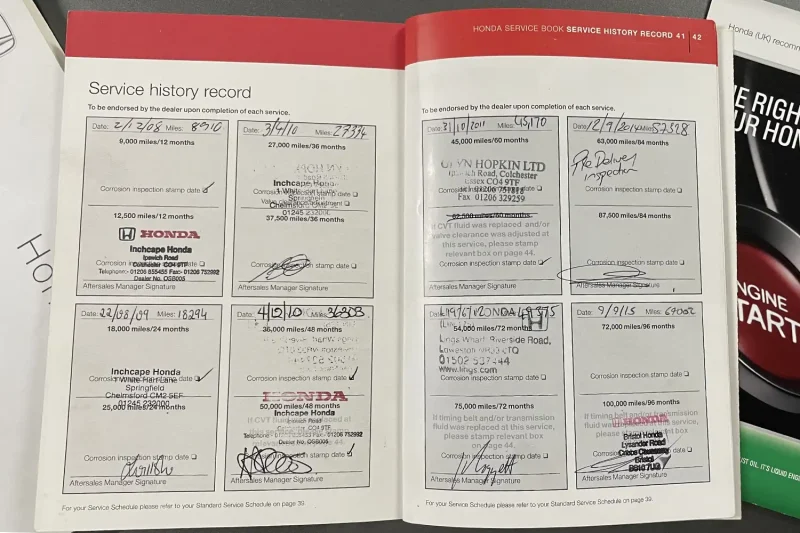 HONDA SERVICE BOOK SERVICE HISTORY RECORD 41 42
Service history record
To be endorsed by the dealer upon completion of each service.
Date: 2/12/08 Miles: 8910
9,000 miles/12 months
Corrosion inspection stamp date
12,500 miles/12 months
HONDA
Inchcape Honda
Ipswich Road
Colchester CO4 9TF
Telephone:- 01206 855455 Fax:- 01206 752992
Dealer No. OSB005
Corrosion inspection stamp date
Aftersales Manager Signature
Date: 3/4/10 Miles: 27334
27,000 miles/36 months
Inchcape Honda
1 White Hart Lane
Springfield
Chelmsford
01245 232000
37,500 miles/36 months
Corrosion inspection stamp date
Aftersales Manager Signature
Date: 22/08/09 Miles: 18294
18,000 miles/24 months
Inchcape Honda
Corrosion inspection stamp date
1 White Hart Lane
Springfield
Chelmsford CM2 5EF
01245 232000
25,000 miles/24 months
Corrosion inspection stamp date
Aftersales Manager Signature
Date: 4/12/10 Miles: 36303
36,000 miles/48 months
Corrosion inspection stamp date
HONDA
50,000 miles/48 months
Inchcape Honda
Ipswich Road
Colchester CO4 9TF
Dealer No. OSB005
Corrosion inspection stamp date
Aftersales Manager Signature
For your Service Schedule please refer to your Standard Service Schedule on page 39.
To be endorsed by the dealer upon completion of each service.
Date: 31/10/2011 Miles: 45,170
45,000 miles/60 months
GLYN HOPKIN LTD
Ipswich Road, Colchester
Essex CO4 9TF
Tel 01206 751818
Fax 01206 329259
Corrosion inspection stamp date
62,500 miles/60 months
If CVT fluid was replaced and/or
valve clearance was adjusted at
this service, please stamp
relevant box on page 44.
Corrosion inspection stamp date
Aftersales Manager Signature
Date: 12/9/2014 Miles: 57528
63,000 miles/84 months
Pre Delivery
inspection
Corrosion inspection stamp date
87,500 miles/84 months
Corrosion inspection stamp date
Aftersales Manager Signature
HONDA
54,000 miles/72 months
Lings Wharf, Riverside Road,
Lowestoft
www.lings.com
Corrosion inspection stamp date
75,000 miles/72 months
If timing belt and/or transmission
fluid was replaced at this service,
please stamp relevant box
on page 44.
Corrosion inspection stamp date
Aftersales Manager Signature
Date: 9/9/15 Miles: 64002
72,000 miles/96 months
Corrosion inspection stamp date
100,000 miles/96 months
If timing belt and/or transmission
fluid was replaced at this service,
please stamp relevant box
HONDA
Bristol Honda
Lysander Road
Cribbs Causeway
Bristol
Corrosion inspection stamp date
Aftersales Manager Signature
For your Service Schedule please refer to your Standard Service Schedule on page 39.
Honda (UK) recomm
E RIGH
UR HON
ENGINE
START
UST OIL. IT'S LIQUID ENG
Hon